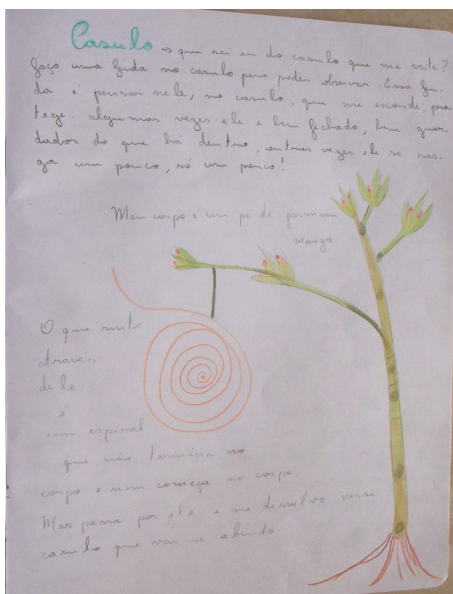 Casulo → que sei eu do casulo que me veste?
faço uma fenda no casulo para poder observar. Essa fen-
da é pensar nele, no casulo, que me esconde, pro
tege. algumas vezes ele é bem fechado, bem guar-
dador do que há dentro, outras vezes ele se ras-
ga um pouco, só um pouco!
Meu corpo é um pé de
manga
O que sint
através
de le
é
um espiral
que não termina no
corpo e nem começa no corpo.
Mas passa por ele e me dissolvo nesse
casulo que vai se abrindo.